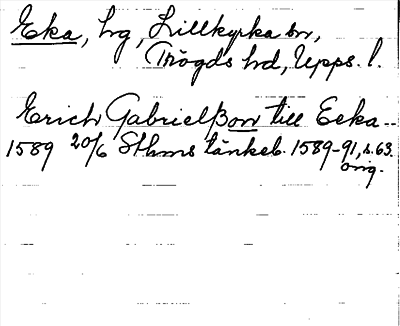 Eka, hg, Lillkyrka sn,
Trögds hd, Upps. l.
Erich Gabrielßon till Eeka--
1589 20/6 Sthms tänkeb. 1589-91, s. 63.
orig.